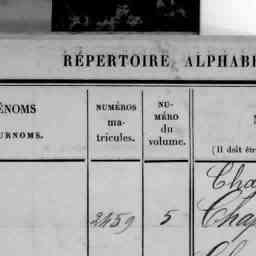 RÉPERTOIRE ALPHABÉ
ÉNOMS
URNOMS.
NUMÉROS
ma-
tricules.
NU-
MÉRO
du
volume.
(Il doit êtr
Cha
2459 5 Chap